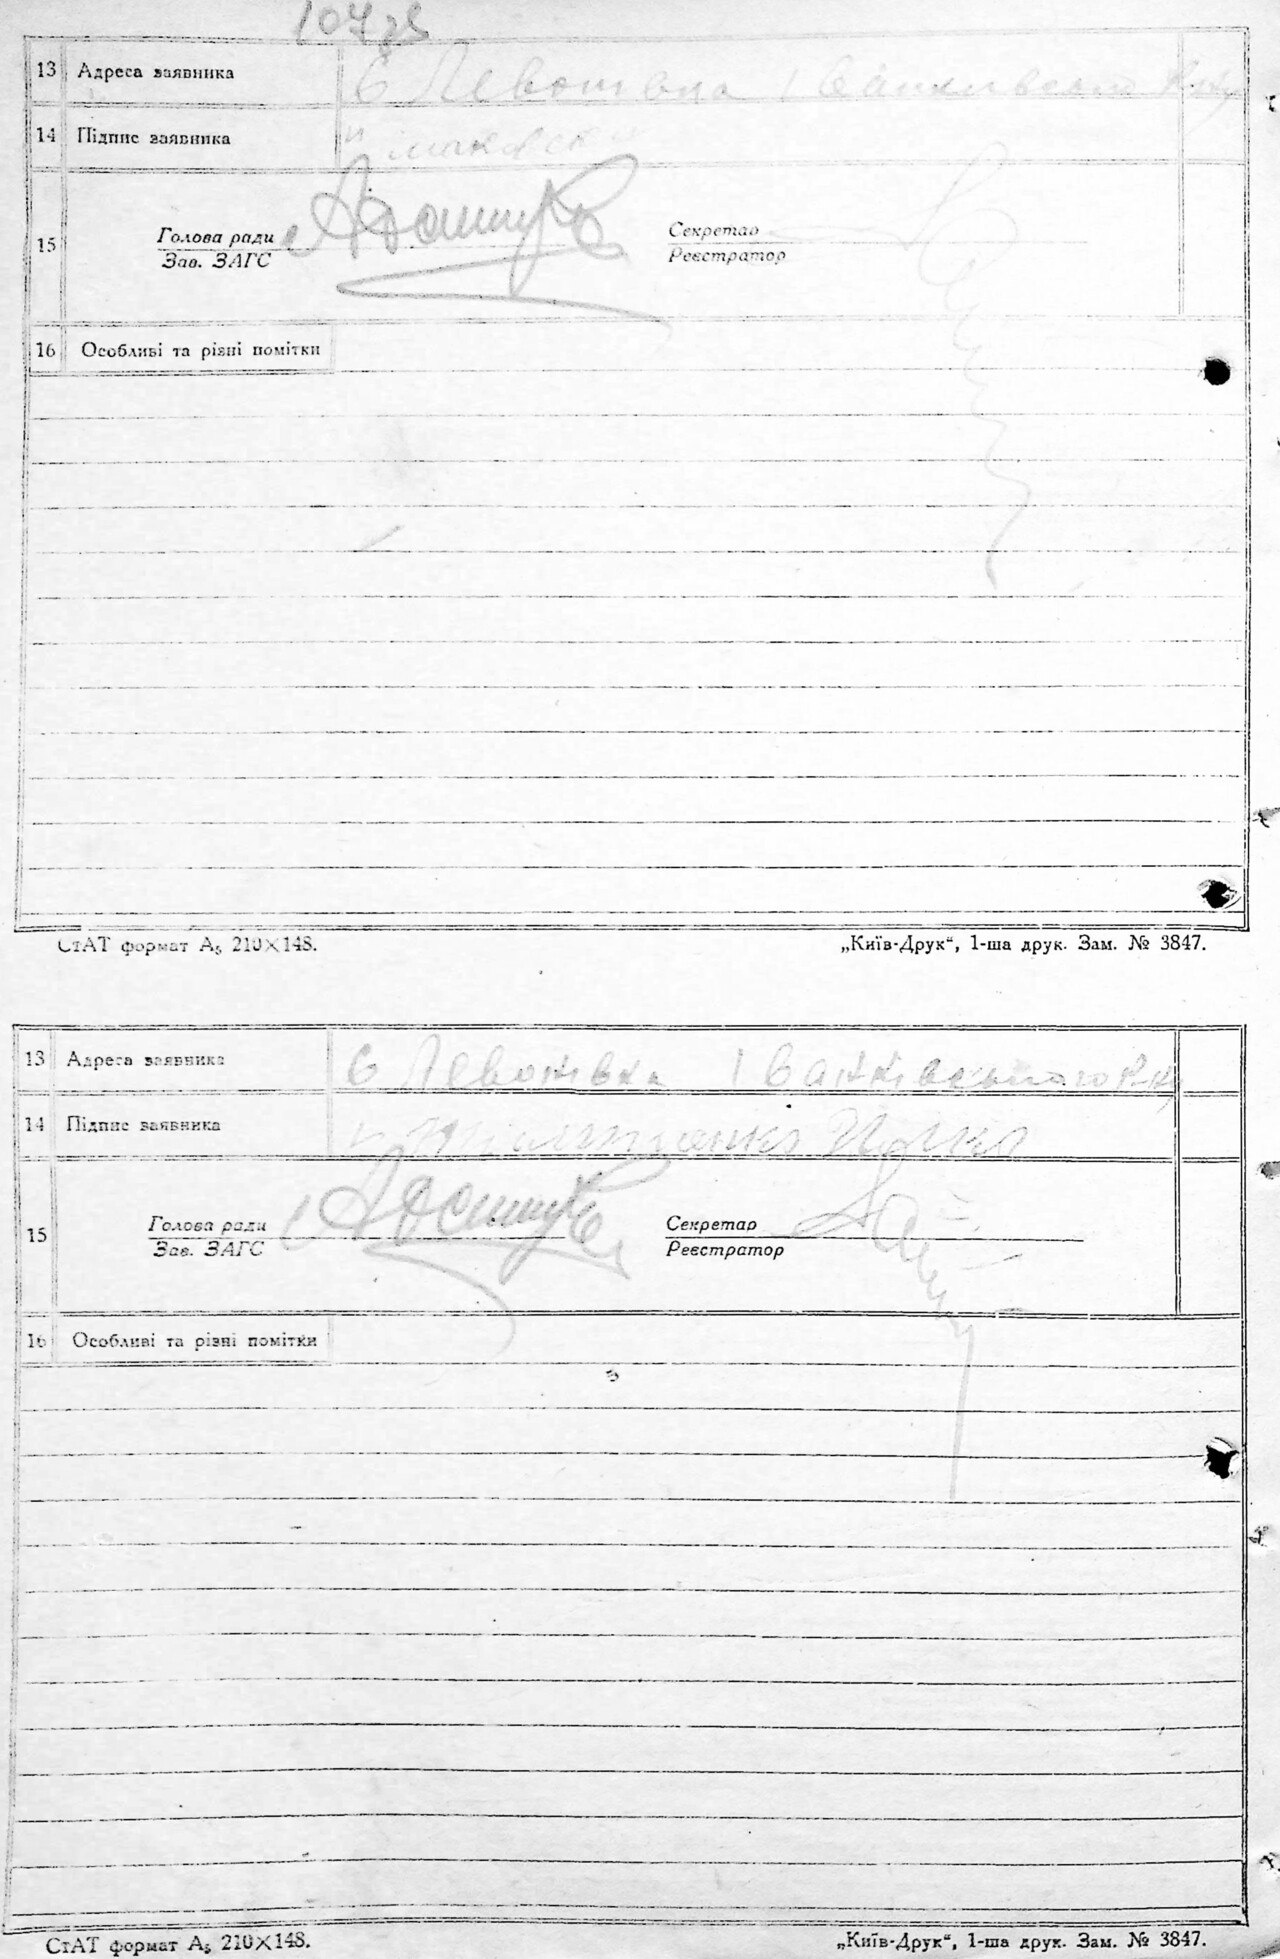 107
13 Адреса заявника с Левонівка Іванківського Р-ну
14 Підпис заявника
15 Голова ради Секретар
Зав. ЗАГС Реєстратор
16 Особливі та різні помітки
СтАТ формат А₅ 210×148. „Київ-Друк“, 1-ша друк. Зам. № 3847.
13 Адреса заявника с Левонівка Іванківського Р-ну
14 Підпис заявника
15 Голова ради Секретар
Зав. ЗАГС Реєстратор
16 Особливі та різні помітки
СтАТ формат А₅ 210×148. „Київ-Друк“, 1-ша друк. Зам. № 3847.